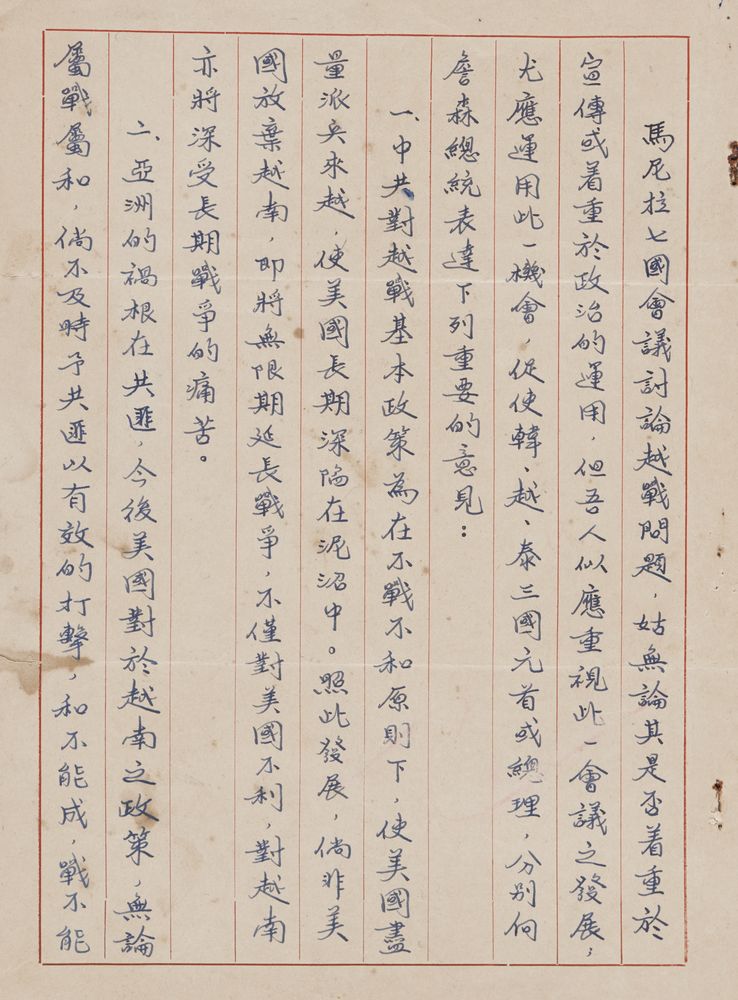 馬尼拉七國會議討論越戰問題，姑無論其是否着重於
宣傳或着重於政治的運用，但吾人似應重視此一會議之發展，
尤應運用此一機會，促使韓、越、泰三國元首或總理，分別向
詹森總統表達下列重要的意見：
一、中共對越戰基本政策為在不戰不和原則下，使美國盡
量派兵來越，使美國長期深陷在泥沼中。照此發展，倘非美
國放棄越南，即將無限期延長戰爭，不僅對美國不利，對越南
亦將深受長期戰爭的痛苦。
二、亞洲的禍根在共匪，今後美國對於越南之政策，無論
屬戰屬和，倘不及時予共匪以有效的打擊，和不能成，戰不能